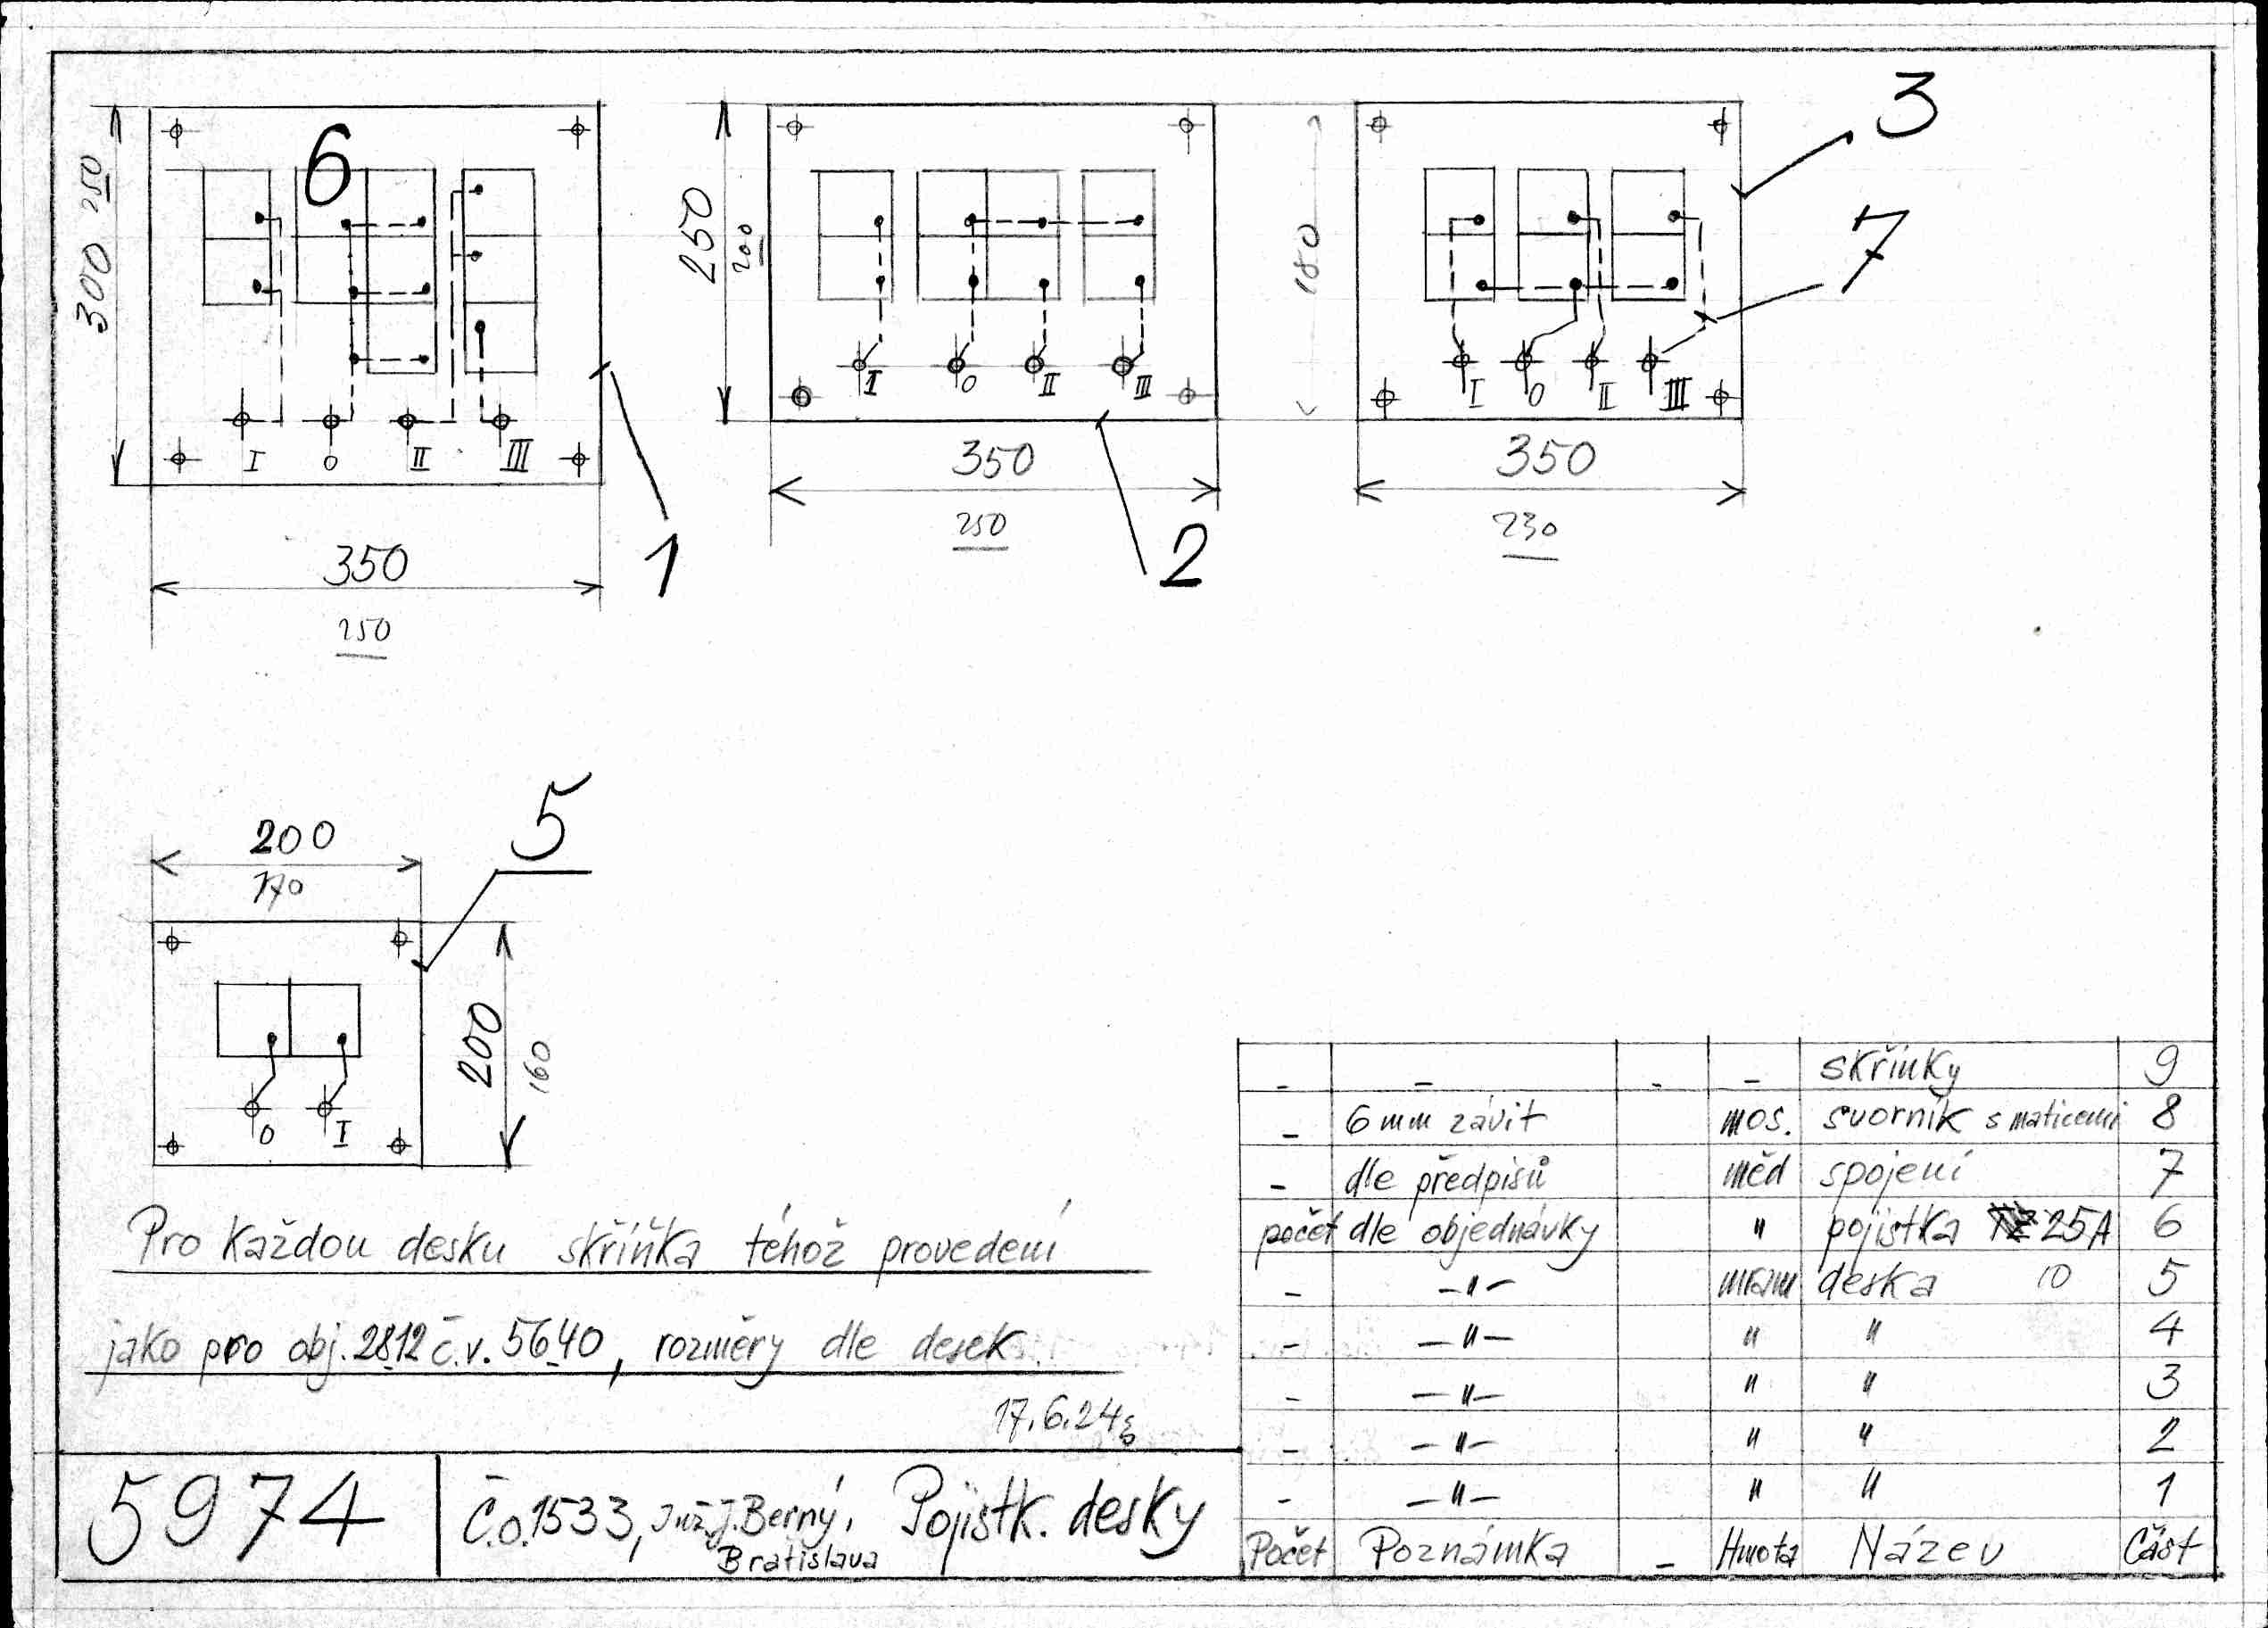 6
3
7
300 250
I
0
II
III
350
250
1
250
200
I
0
II
III
350
250
2
180
I
0
II
III
350
230
5
200
170
200
160
0
I
Pro každou desku skříňka téhož provedení
jako pro obj. 2812 č.v. 5640, rozměry dle desek.
17.6.24
5974
Č.o. 1533, Inž. J. Berný, Pojistk. desky
Bratislava
- - - - skřínky 9
- 6 mm závit mos. svorník s maticemi 8
- dle předpisů měd spojení 7
počet dle objednávky " pojistka 25A 6
- -"- mram deska 10 5
- -"- " " 4
- -"- " " 3
- -"- " " 2
- -"- " " 1
Počet Poznámka - Hmota Název Část